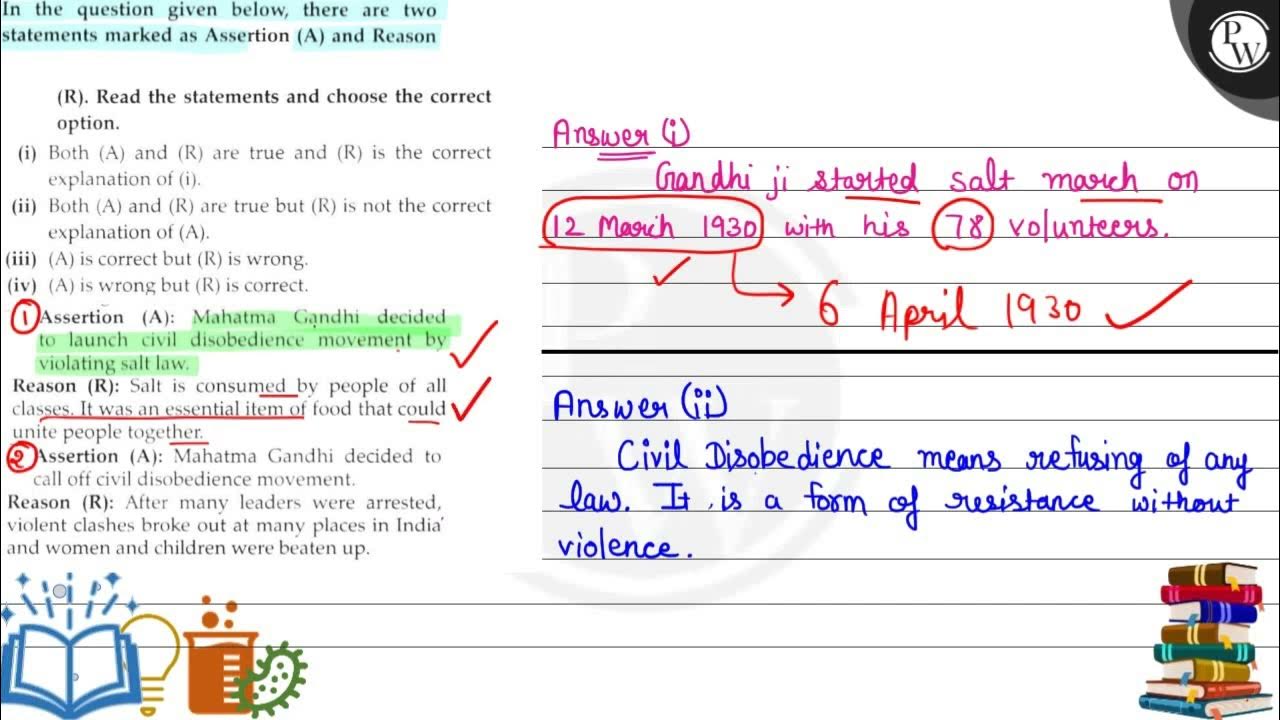 In the question given below, there are two
statements marked as Assertion (A) and Reason
(R). Read the statements and choose the correct
option.
(i) Both (A) and (R) are true and (R) is the correct
explanation of (i).
(ii) Both (A) and (R) are true but (R) is not the correct
explanation of (A).
(iii) (A) is correct but (R) is wrong.
(iv) (A) is wrong but (R) is correct.
1 Assertion (A): Mahatma Gandhi decided
to launch civil disobedience movement by
violating salt law.
Reason (R): Salt is consumed by people of all
classes. It was an essential item of food that could
unite people together.
2 Assertion (A): Mahatma Gandhi decided to
call off civil disobedience movement.
Reason (R): After many leaders were arrested,
violent clashes broke out at many places in India'
and women and children were beaten up.
PW
Answer (i)
Gandhi ji started salt march on
12 March 1930 with his 78 volunteers.
6 April 1930
Answer (ii)
Civil Disobedience means refusing of any
law. It is a form of resistance without
violence.